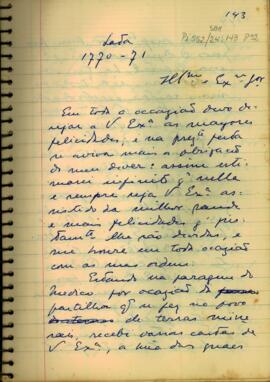 143
Lata
1770-71
Illmo. e Exmo. Snr.
Em toda a occazião devo de-
sejar a V. Exª as mayores
felicidades, e na prezte. festa
se aviva mais a obrigação
do meu dever e assim esti-
marei infinito q' nella
e sempre seja V. Exª as-
sistido da milhor saude
e mais felicidades q' jus-
tamte. lhe são devidas, e
me honre em toda occazião
com as suas ordens.
Estando na paragem do
medico por occazião da
partilha q' se fez no povo
de terras mine-
rais, recebi varias cartas de
V. Exª, a mão das quaes